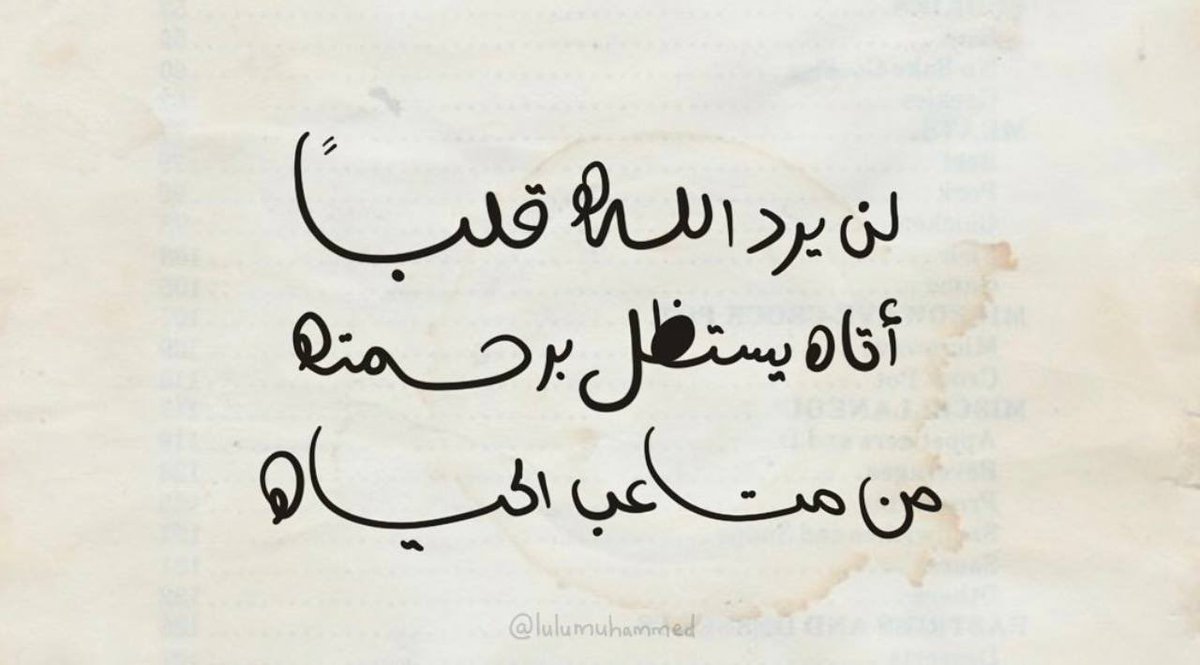 لن يرد الله قلباً
أتاه يستظل برحمته
من متاعب الحياه
@lulumuhammed